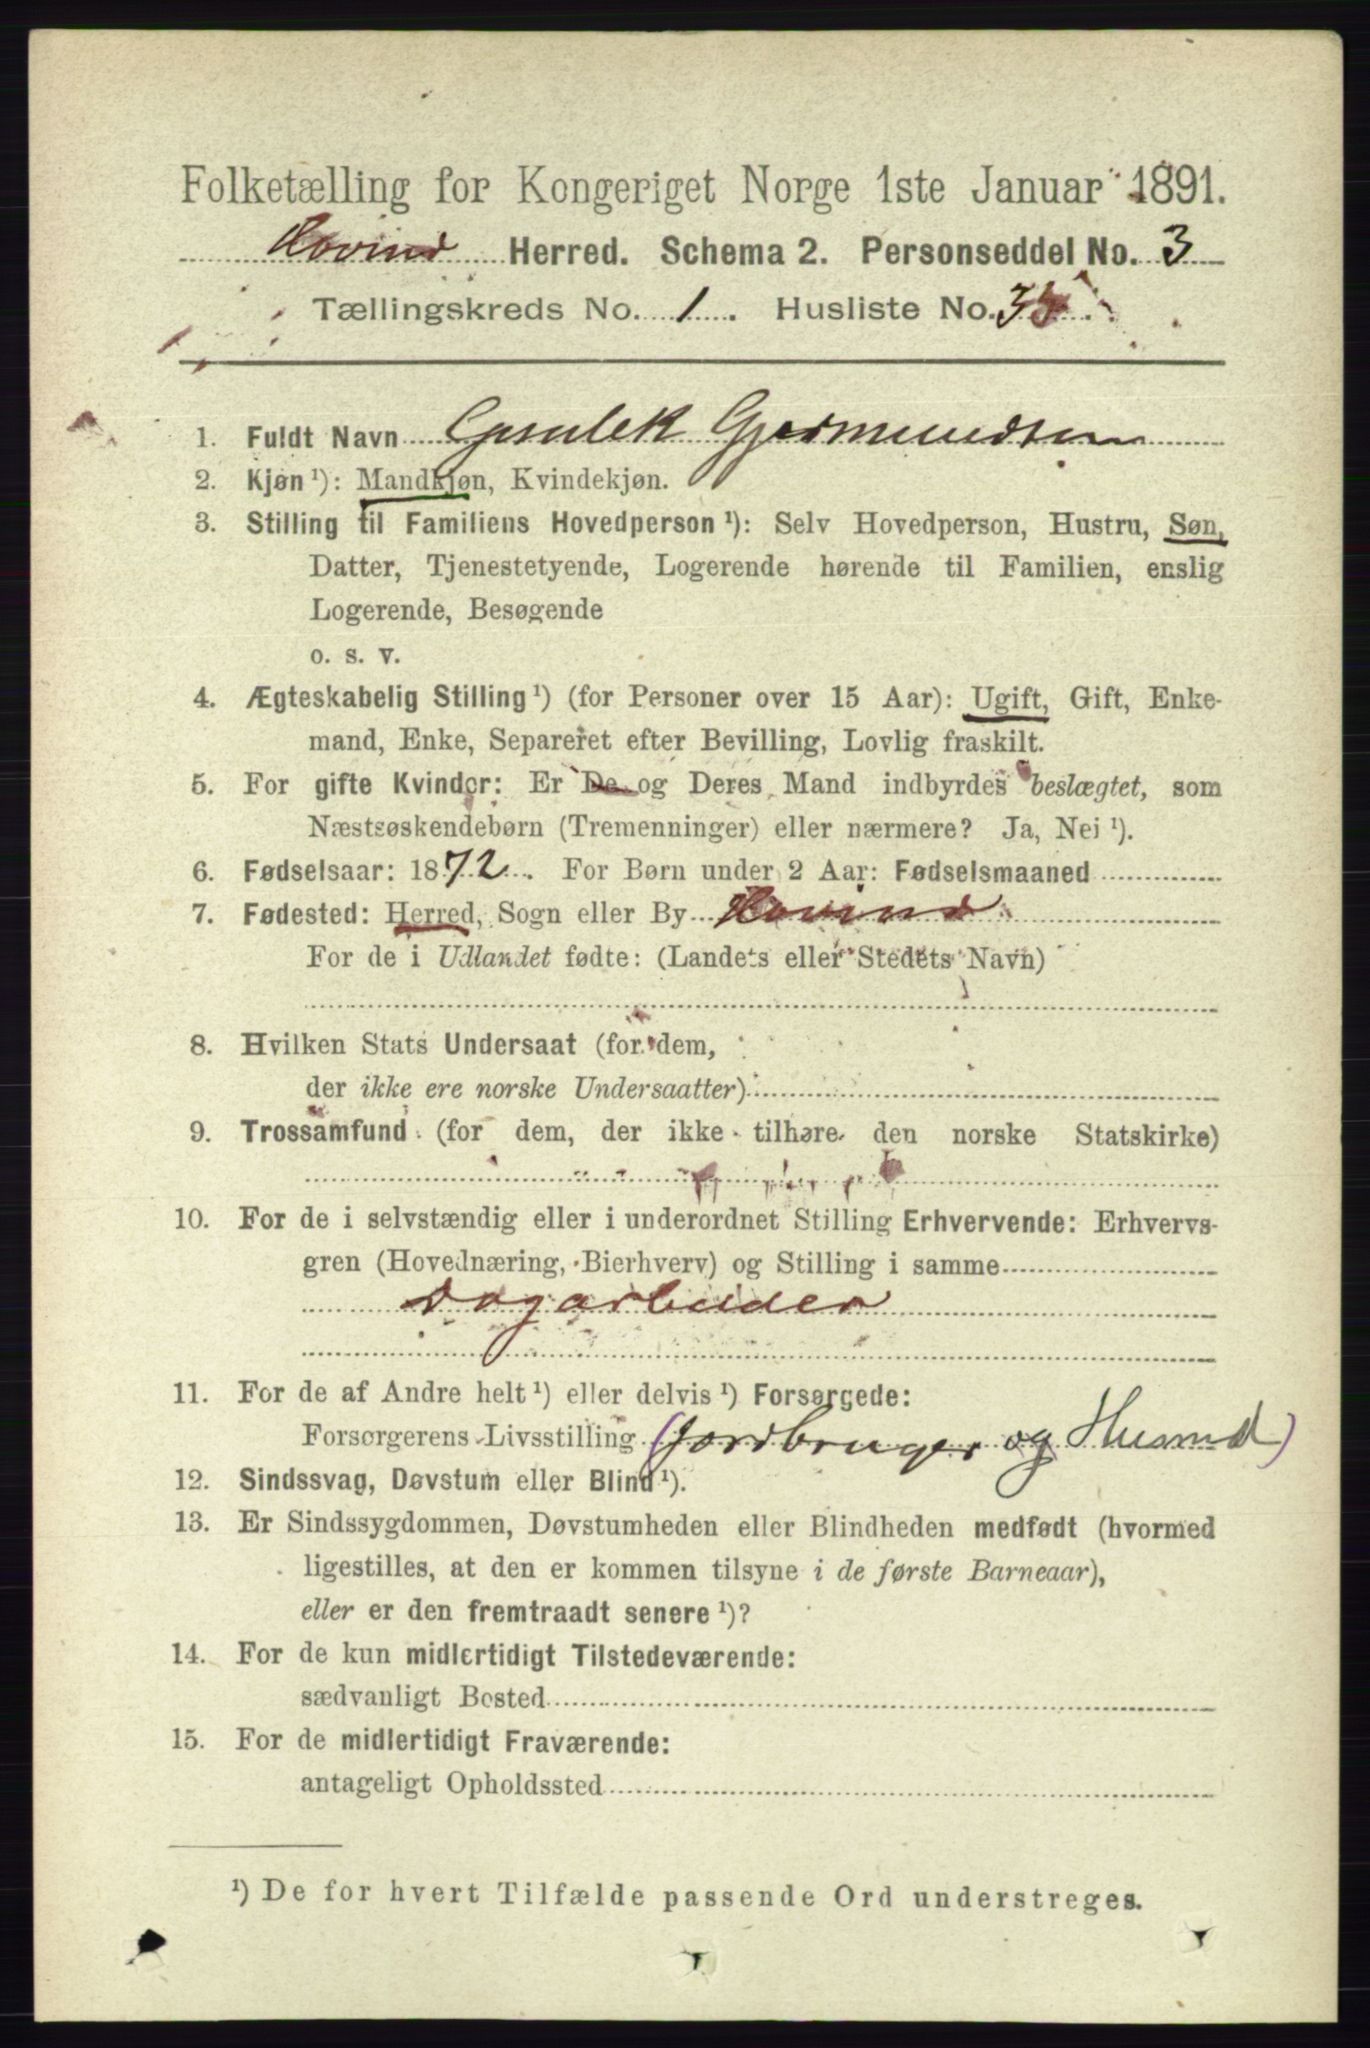 Folketælling for Kongeriget Norge 1ste Januar 1891.
Hovind Herred. Schema 2. Personseddel No. 3
Tællingskreds No. 1. Husliste No.
1. Fuldt Navn Gunlek Gjermundsen
2. Kjøn ¹): Mandkjøn, Kvindekjøn.
3. Stilling til Familiens Hovedperson ¹): Selv Hovedperson, Hustru, Søn,
Datter, Tjenestetyende, Logerende hørende til Familien, enslig
Logerende, Besøgende
o. s. v.
4. Ægteskabelig Stilling ¹) (for Personer over 15 Aar): Ugift, Gift, Enke-
mand, Enke, Separeret efter Bevilling, Lovlig fraskilt.
5. For gifte Kvinder: Er De og Deres Mand indbyrdes beslægtet, som
Næstsøskendebørn (Tremenninger) eller nærmere? Ja, Nei ¹).
6. Fødselsaar: 1872. For Børn under 2 Aar: Fødselsmaaned
7. Fødested: Herred, Sogn eller By Hovind
For de i Udlandet fødte: (Landets eller Stedets Navn)
8. Hvilken Stats Undersaat (for dem,
der ikke ere norske Undersaatter)
9. Trossamfund (for dem, der ikke tilhøre den norske Statskirke)
10. For de i selvstændig eller i underordnet Stilling Erhvervende: Erhvervs-
gren (Hovednæring, Bierhverv) og Stilling i samme
Dagarbeider
11. For de af Andre helt ¹) eller delvis ¹) Forsørgede:
Forsørgerens Livsstilling (Jordbruger og Husmd)
12. Sindssvag, Døvstum eller Blind ¹).
13. Er Sindssygdommen, Døvstumheden eller Blindheden medfødt (hvormed
ligestilles, at den er kommen tilsyne i de første Barneaar),
eller er den fremtraadt senere ¹)?
14. For de kun midlertidigt Tilstedeværende:
sædvanligt Bosted
15. For de midlertidigt Fraværende:
antageligt Opholdssted
¹) De for hvert Tilfælde passende Ord understreges.